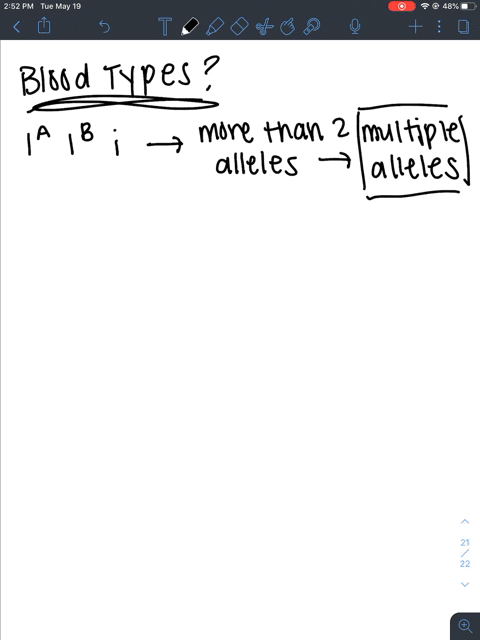 2:52 PM Tue May 19
48%
Blood Types?
I^A I^B i → more than 2
alleles → multiple
alleles
21
/
22